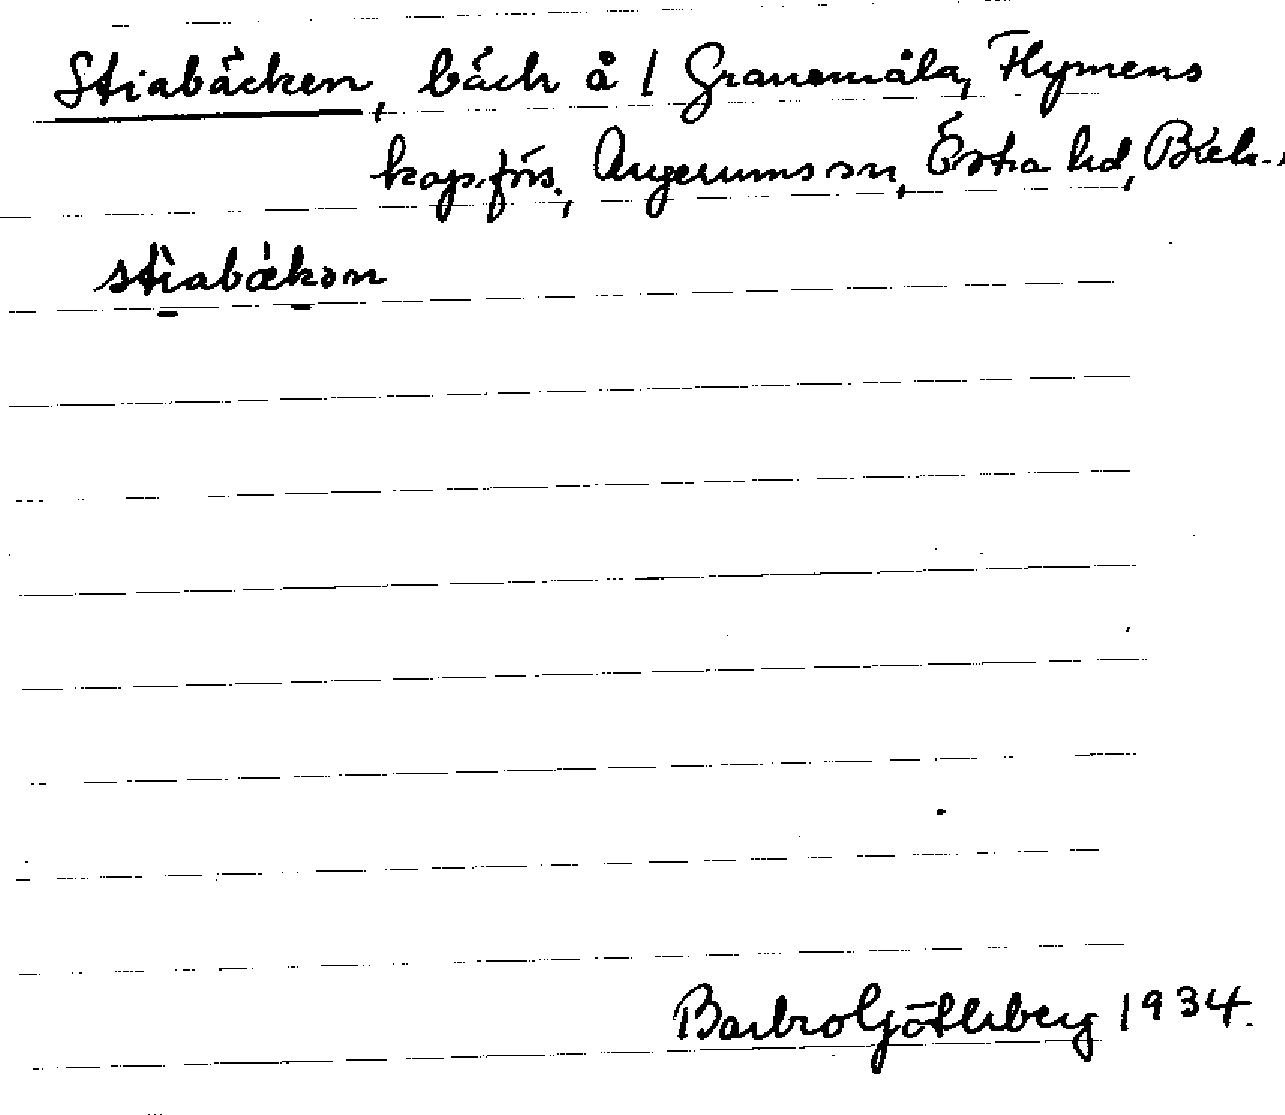 Stiabäcken, bäck å 1 Granemåla, Flymens
kap.förs., Augerums sn, Östra hd, Blek.
stìabǽkən
Barbro Götlberg 1934.